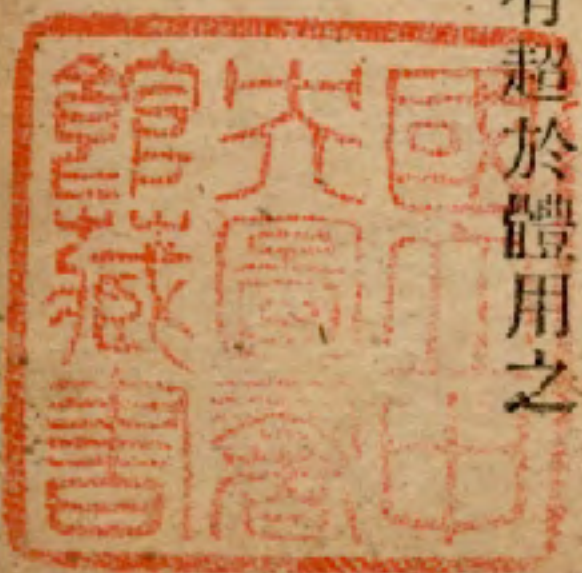 有超於體用之
國立中
央圖書
館藏書